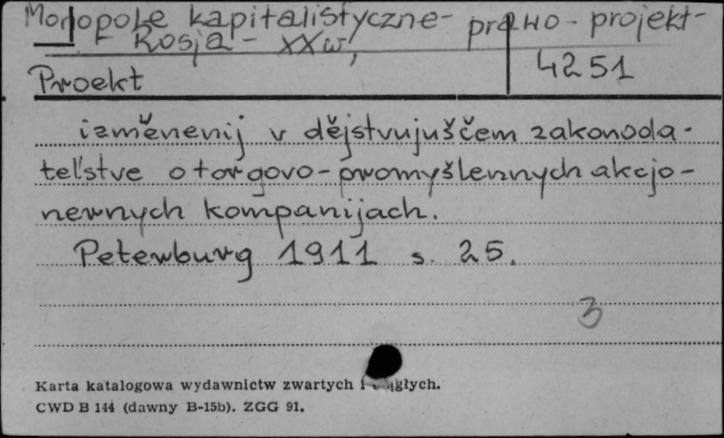 Monopole kapitalistyczne - prawo - projekt -
- Rosja - XXw,
Proekt
4251
izměnenij v dějstvujuščem zakonoda-
tel'stve o torgovo-promyšlennych akcjo-
nernych kompanijach.
Peterburg 1911 s. 25.
3
Karta katalogowa wydawnictw zwartych i ciągłych.
CWD B 144 (dawny B-15b). ZGG 91.